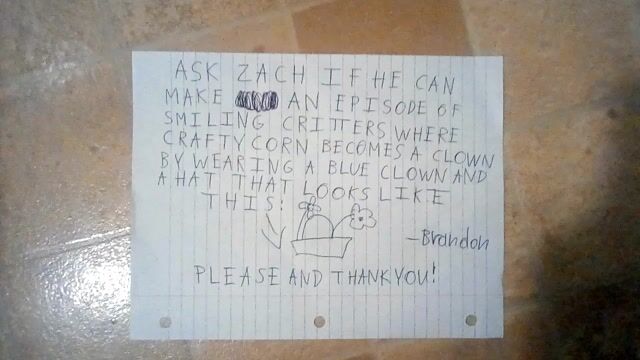 ASK ZACH IF HE CAN
MAKE AN EPISODE OF
SMILING CRITTERS WHERE
CRAFTYCORN BECOMES A CLOWN
BY WEARING A BLUE CLOWN AND
A HAT THAT LOOKS LIKE
THIS:
—Brandon
PLEASE AND THANK YOU!